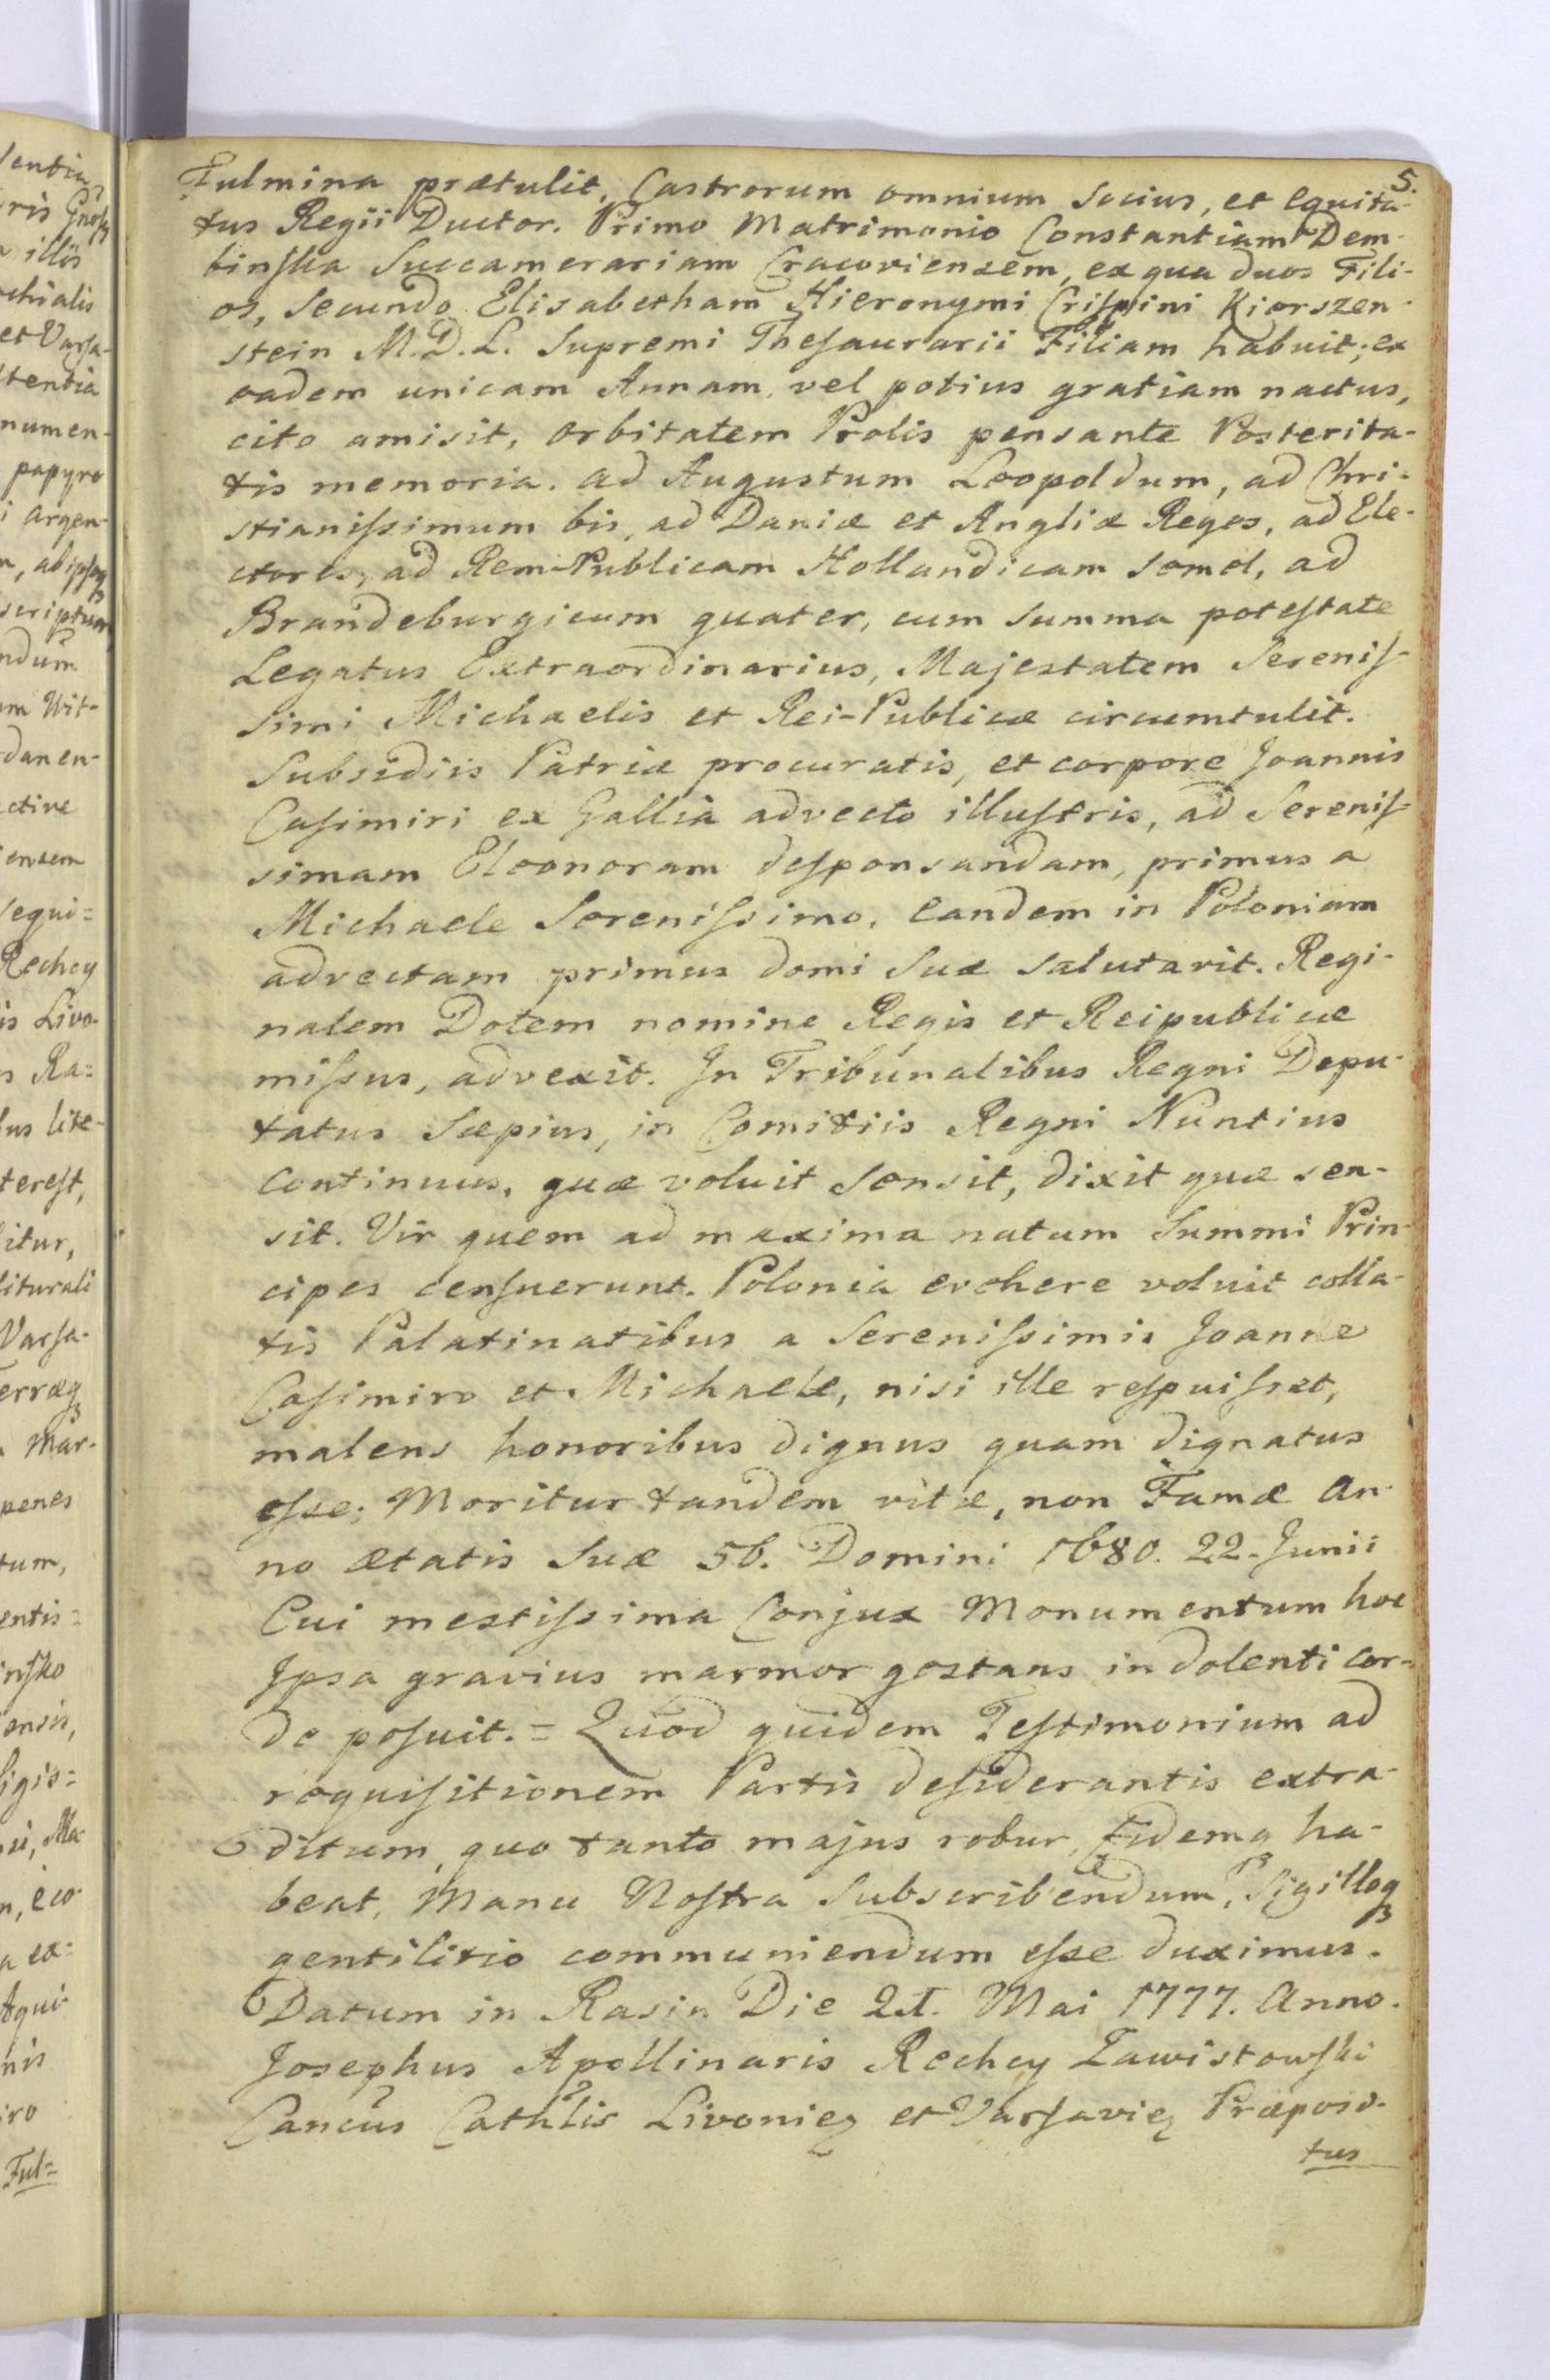 5.
Fulmina prætulit, Castrorum omnium Socius, et Equita-
tus Regii Ductor. Primo Matrimonio Constantiam Dem-
binſka Succamerariam Cracoviensem, ex qua duos Fili-
os, Secundo Elisabetham Hieronymi Criſpini Kierszen-
stein M.D.L. Supremi Theſaurarii Filiam habuit; ex
eadem unicam Annam, vel potius gratiam nactus,
cito amisit, Orbitatem Prolis pensante Posterita-
tis memoria. ad Augustum Leopoldum, ad Chri-
stianiſsimum bis, ad Daniæ et Angliæ Reges, ad Ele-
ctores, ad Rem-Publicam Hollandicam Semel, ad
Brandeburgicum quater, cum Summa poteſtate
Legatus Extraordinarius, Majestatem Sereniſ-
simi Michaelis et Rei-Publicæ circumtulit.
Subsidiis Patriæ procuratis, et corpore Joannis
Caſimiri ex Gallia advecto illuſtris, ad Sereniſ-
simam Eleonoram deſponsandam, primus a
Michaele Sereniſsimo, Eandem in Poloniam
advectam primus domi Suæ Salutavit. Regi-
nalem Dotem nomine Regis et Reipublicæ
miſsus, advexit. In Tribunalibus Regni Depu-
tatus Sæpius, in Comitiis Regni Nuntius
Continuus, quæ voluit Sensit, dixit quæ sen-
sit. Vir quem ad maxima natum Summi Prin-
cipes cenſuerunt. Polonia evehere voluit colla-
tis Palatinatibus a Sereniſsimis Joanne
Caſimiro et Michaele, nisi ille reſpuiſset,
malens honoribus dignus quam dignatus
eſse; Moritur tandem vitæ, non Famæ An-
no ætatis Suæ 56. Domini 1680. 22. Junii
Cui mestiſsima Conjux Monumentum hoc
Ipsa gravius marmor gestans in dolenti cor-
de poſuit. = Quod quidem Teſtimonium ad
requiſitionem Partis deſiderantis extra-
ditum, quo tanto majus robur, Fidemq ha-
beat, Manu Noſtra Subscribendum, Sigilloq
gentilitio communiendum eſse duximus.
Datum in Rasin Die 21. Mai 1777. Anno.
Josephus Apollinaris Rechey Zawistowſki
Cancus Cathlis Livonię et Varſavię Præposi-
tus